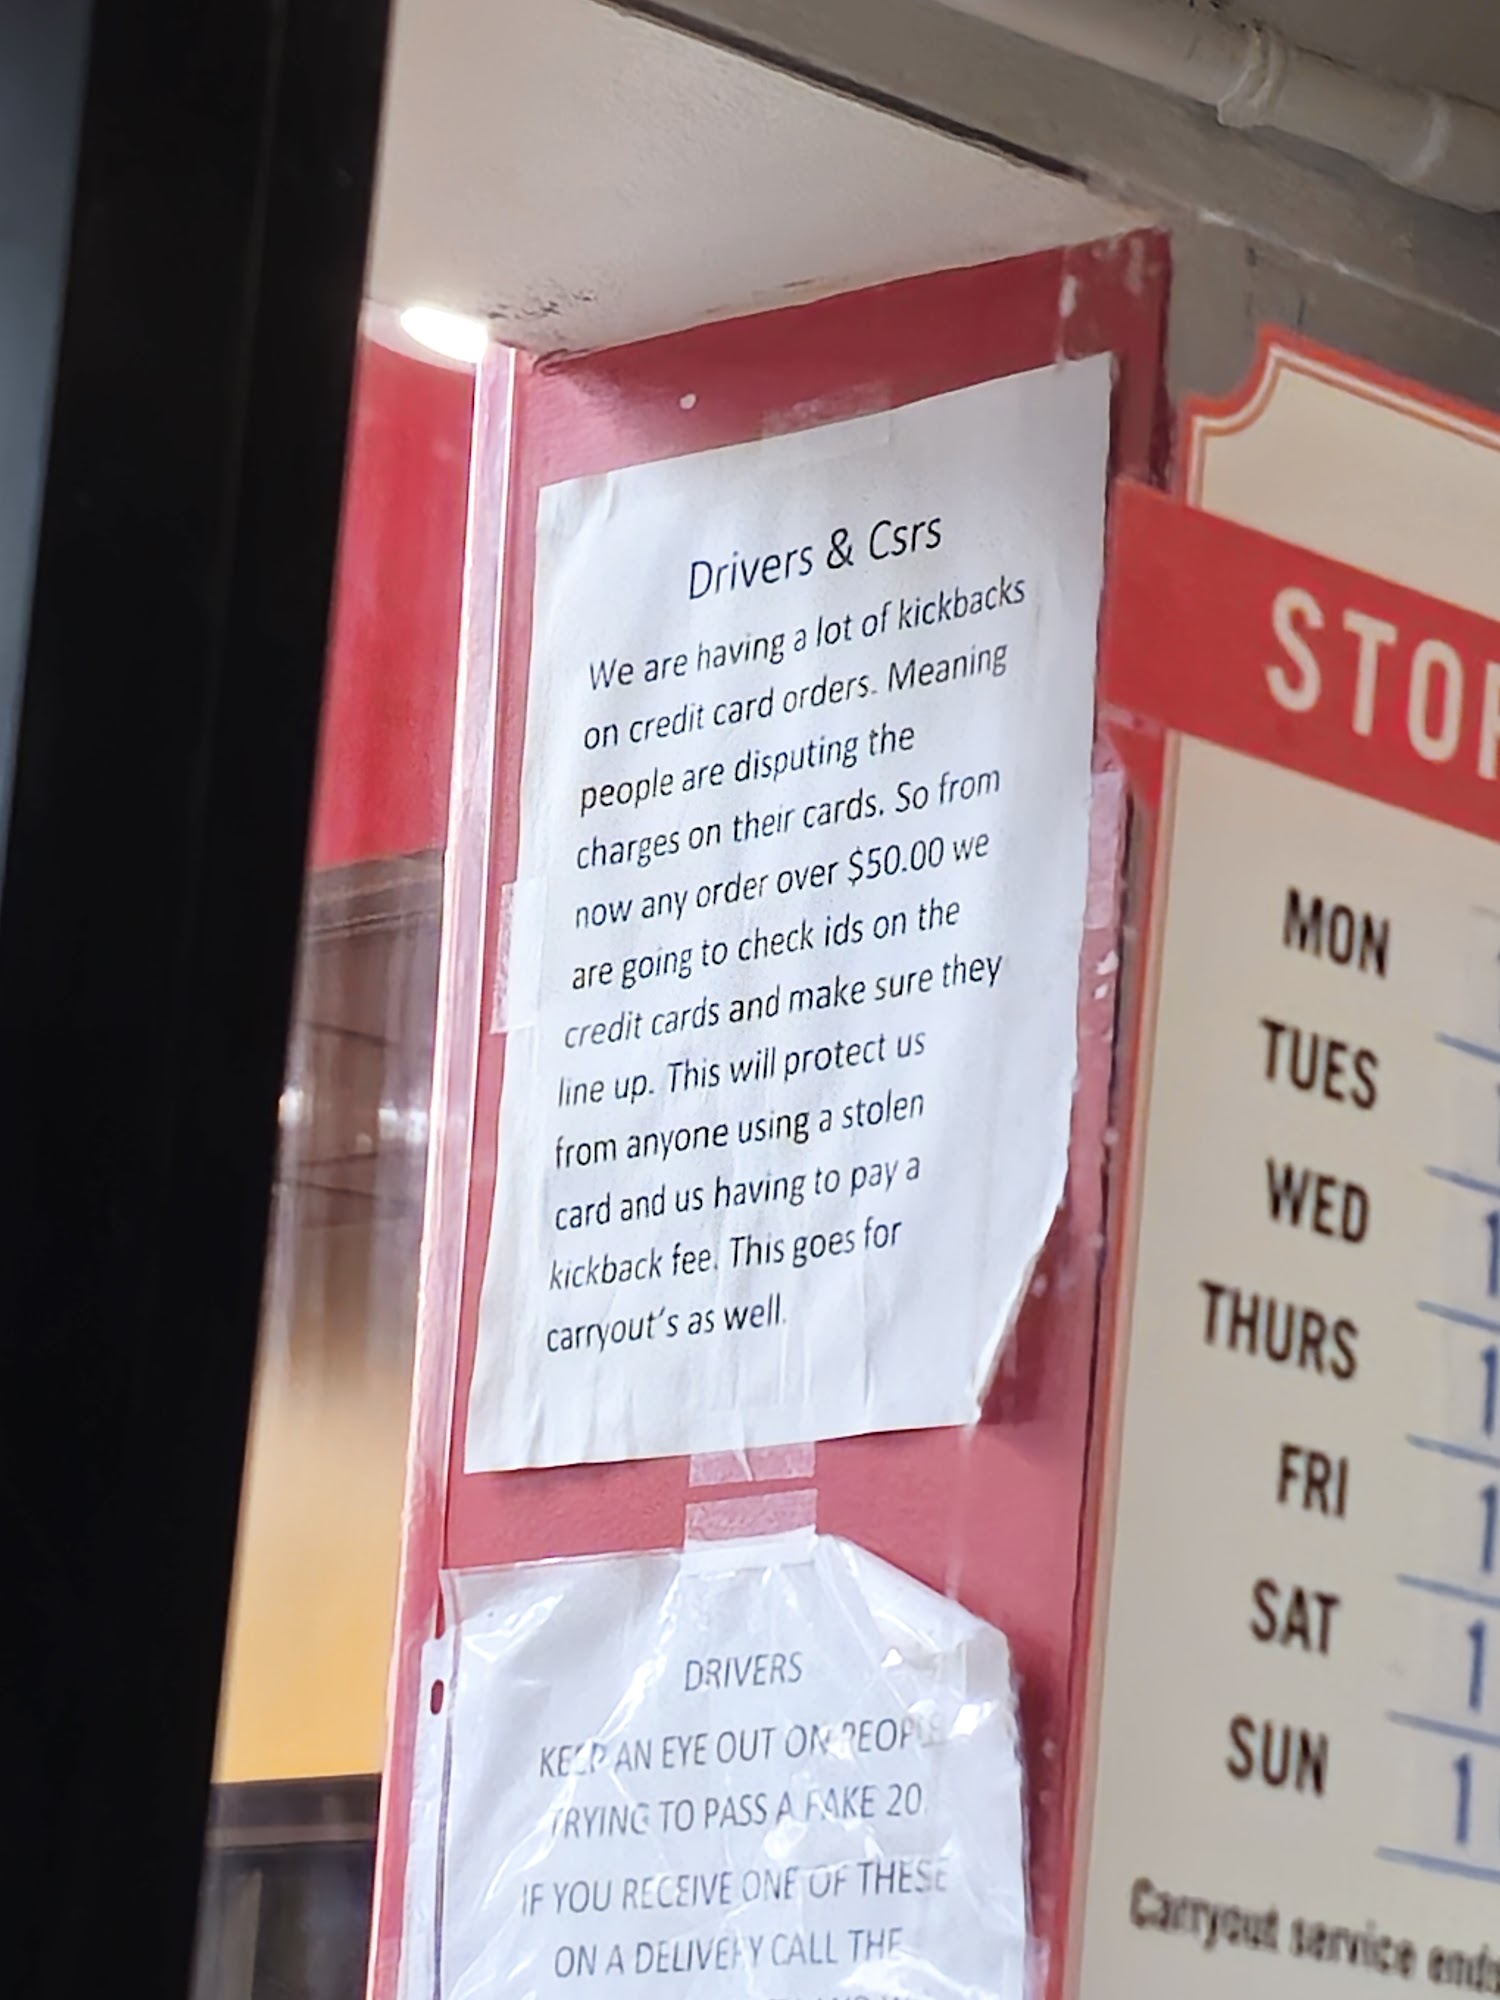 Drivers & Csrs
We are having a lot of kickbacks
on credit card orders. Meaning
people are disputing the
charges on their cards. So from
now any order over $50.00 we
are going to check ids on the
credit cards and make sure they
line up. This will protect us
from anyone using a stolen
card and us having to pay a
kickback fee. This goes for
carryout's as well.
DRIVERS
KEEP AN EYE OUT ON PEOPLE
TRYING TO PASS A FAKE 20.
IF YOU RECEIVE ONE OF THESE
ON A DELIVERY CALL THE
STOR
MON
TUES
WED 1
THURS 1
FRI 1
SAT 1
SUN 1
Carryout service ends